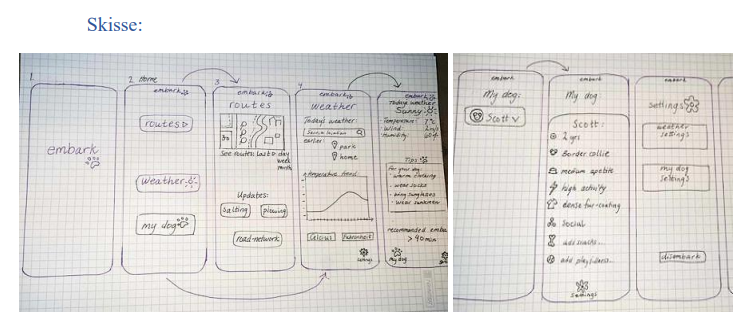 Skisse:
1.
embark
2. Home
embark
routes
weather
my dog
3.
embark
routes
see routes: last
day
week
month
Updates:
Salting
plowing
road-network
4
embark
weather
Todays weather:
Search location
earlier:
park
home
temperature trend
Celcius
Fahrenheit
settings
embark
Todays weather
Sunny
Temperature:
Wind:
Humidity:
Tips
For your dog:
- warm clothing
- wear socks
- bring sunglasses
- wear sunscreen
recommended
> 90 min
my dog
embark
My dog:
Scott
embark
My dog
Scott:
2 yrs
Border collie
medium apetite
high activity
dense fur-coating
Social
add snacks...
add playdates...
Settings
embark
settings
weather
settings
my dog
settings
disembark